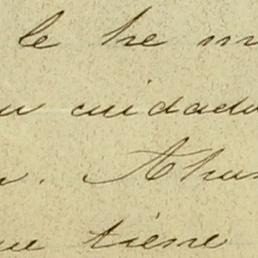 le he m
cuidado
. Ahu
ue tiene